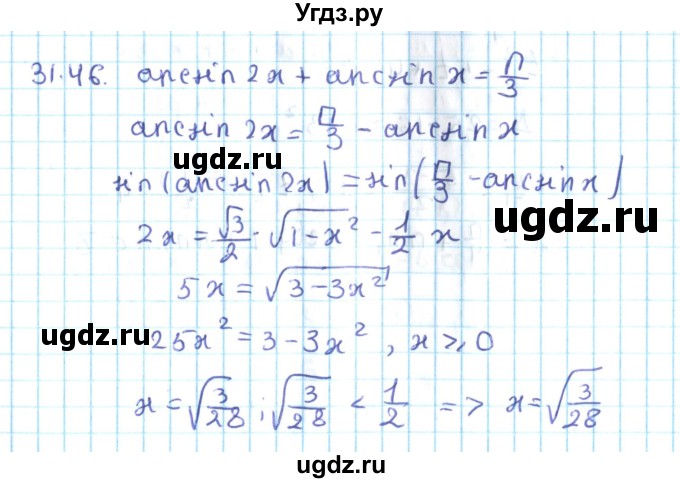 Угдз.ру
31.46. arcsin 2x + arcsin x = π/3
arcsin 2x = π/3 - arcsin x
ugdz.ru
sin(arcsin 2x) = sin(π/3 - arcsin x)
ugdz.ru
2x = √3/2 · √(1-x²) - 1/2 x
5x = √(3-3x²)
ugdz.ru
25x² = 3 - 3x², x ⩾ 0
x = √(3/28); √(3/28) < 1/2 => x = √(3/28)
ugdz.ru
ugdz.ru